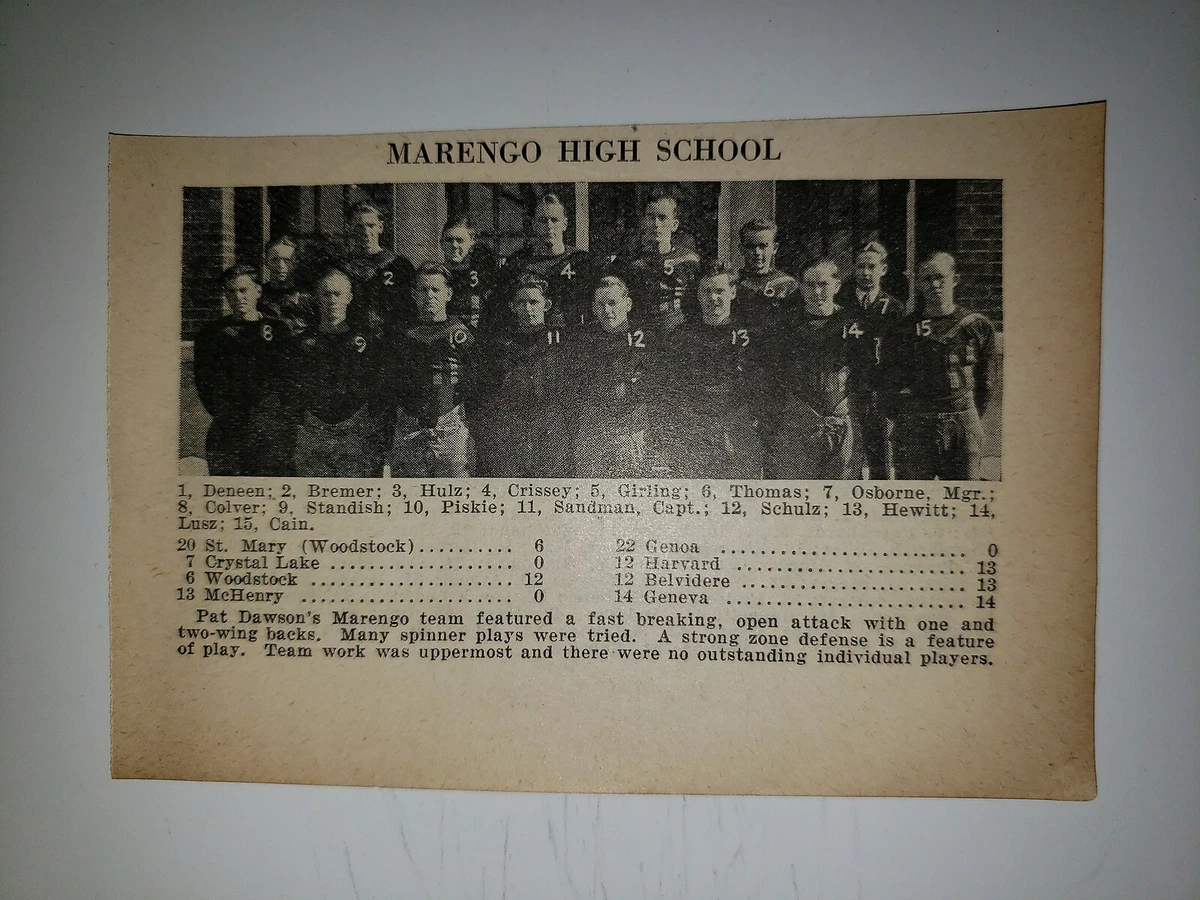 MARENGO HIGH SCHOOL
2 3 4 5 6 7
8 9 10 11 12 13 14 15
1, Deneen; 2, Bremer; 3, Hulz; 4, Crissey; 5, Girling; 6, Thomas; 7, Osborne, Mgr.;
8, Colver; 9, Standish; 10, Piskie; 11, Sandman, Capt.; 12, Schulz; 13, Hewitt; 14,
Lusz; 15, Cain.
20 St. Mary (Woodstock).......... 6
7 Crystal Lake ..................... 0
6 Woodstock ...................... 12
13 McHenry ....................... 0
22 Genoa ........................... 0
12 Harvard ......................... 13
12 Belvidere ........................ 13
14 Geneva .......................... 14
Pat Dawson's Marengo team featured a fast breaking, open attack with one and
two-wing backs. Many spinner plays were tried. A strong zone defense is a feature
of play. Team work was uppermost and there were no outstanding individual players.